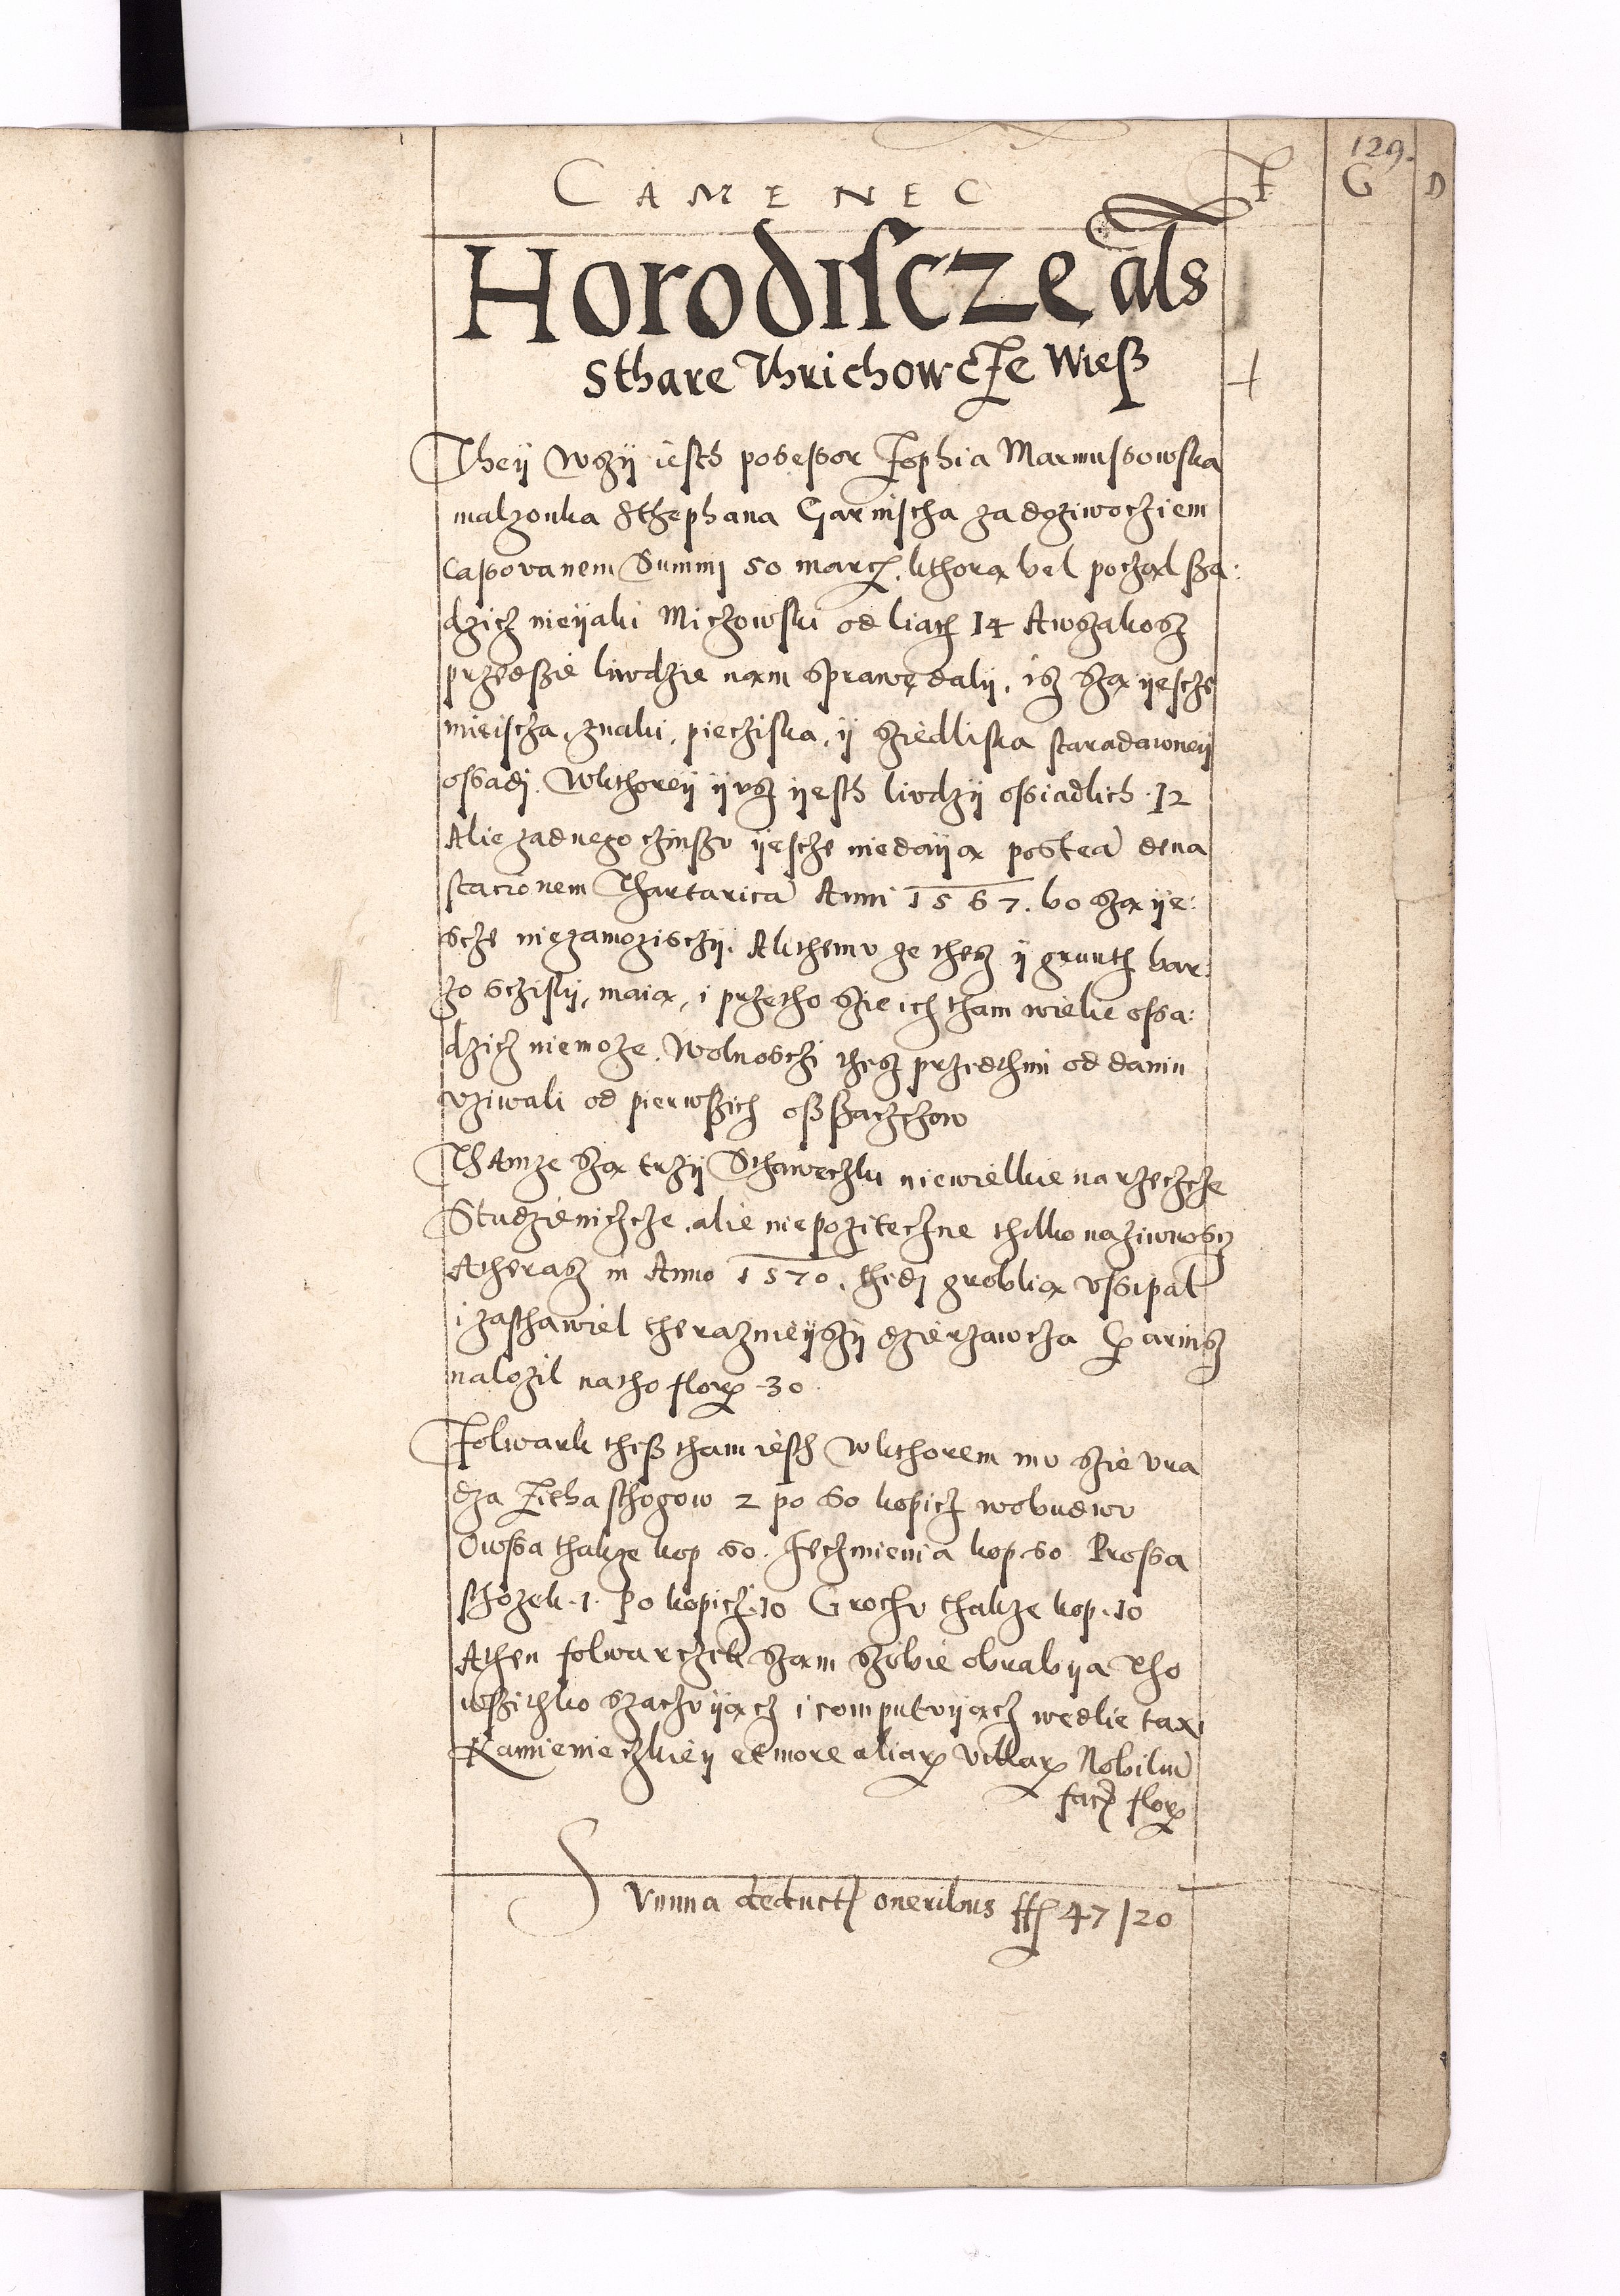 129.
CAMENEC F G D
Horodiscze als
Sthare Thrichowcze Wieß
Theÿ wszÿ iesth possessor Zophia Marmussowska
malzonka Sthephana Garnischa za dozywocziem
Cassowanem Summy 50 marcz. kthorą bel począl sza:
dzicz nieÿaki Miczowski od liath 14 Awszakosz
przedsie liudzie nąm sprawę dalÿ, isz sżą ÿescze
mieiscza, znaki, pieczyska, ÿ sziedliska staradawneÿ
ossadi. Wkthoreÿ ÿusz ÿesth liudzÿ ossiadlich 12
Alie zadnego czinszu ÿescze niedaÿą postea deva
stacionem Thartarica Anni 1567. bo sżą ÿe:
scze niezamozisczÿ. Akthemu ze thesz ÿ grunth bar:
zo sczislÿ, maią, i przetho szie ich tham wielie ossa:
dzicz niemoze. Wolnosczi thesz przedthim od danin
vziwali od pierwszich osszaczczow
Thamze sżą trzÿ Sthaweczki niewielkie na rzeczcze
Studzieniczcze, alie niepoziteczne thilko naziwnoscz
Atherasz in Anno 1570. thedi groblią vssipal
i zasthawiel therazmieÿszÿ dzierzawcza Garnisz
nalozil natho florꝝ 30
Folwark thesz tham iesth wkthorem mu szie vra
dza Zitha sthogow 2 po 60 kopicz wobudwu
Owssa thakze kop 60. Jeczmienia kop 60 Prossa
sthozek 1. Po kopicz 10 Grochu thakze kop. 10
Athen folwarczek szam szobie obrabÿa Tho
wszithko szacuÿącz i computuÿącz wedlie taxi
Kamienieczkieÿ et more aliarꝝ villarꝝ Nobiliu
facż florꝝ
Summa deduct oneribus ff 47/20